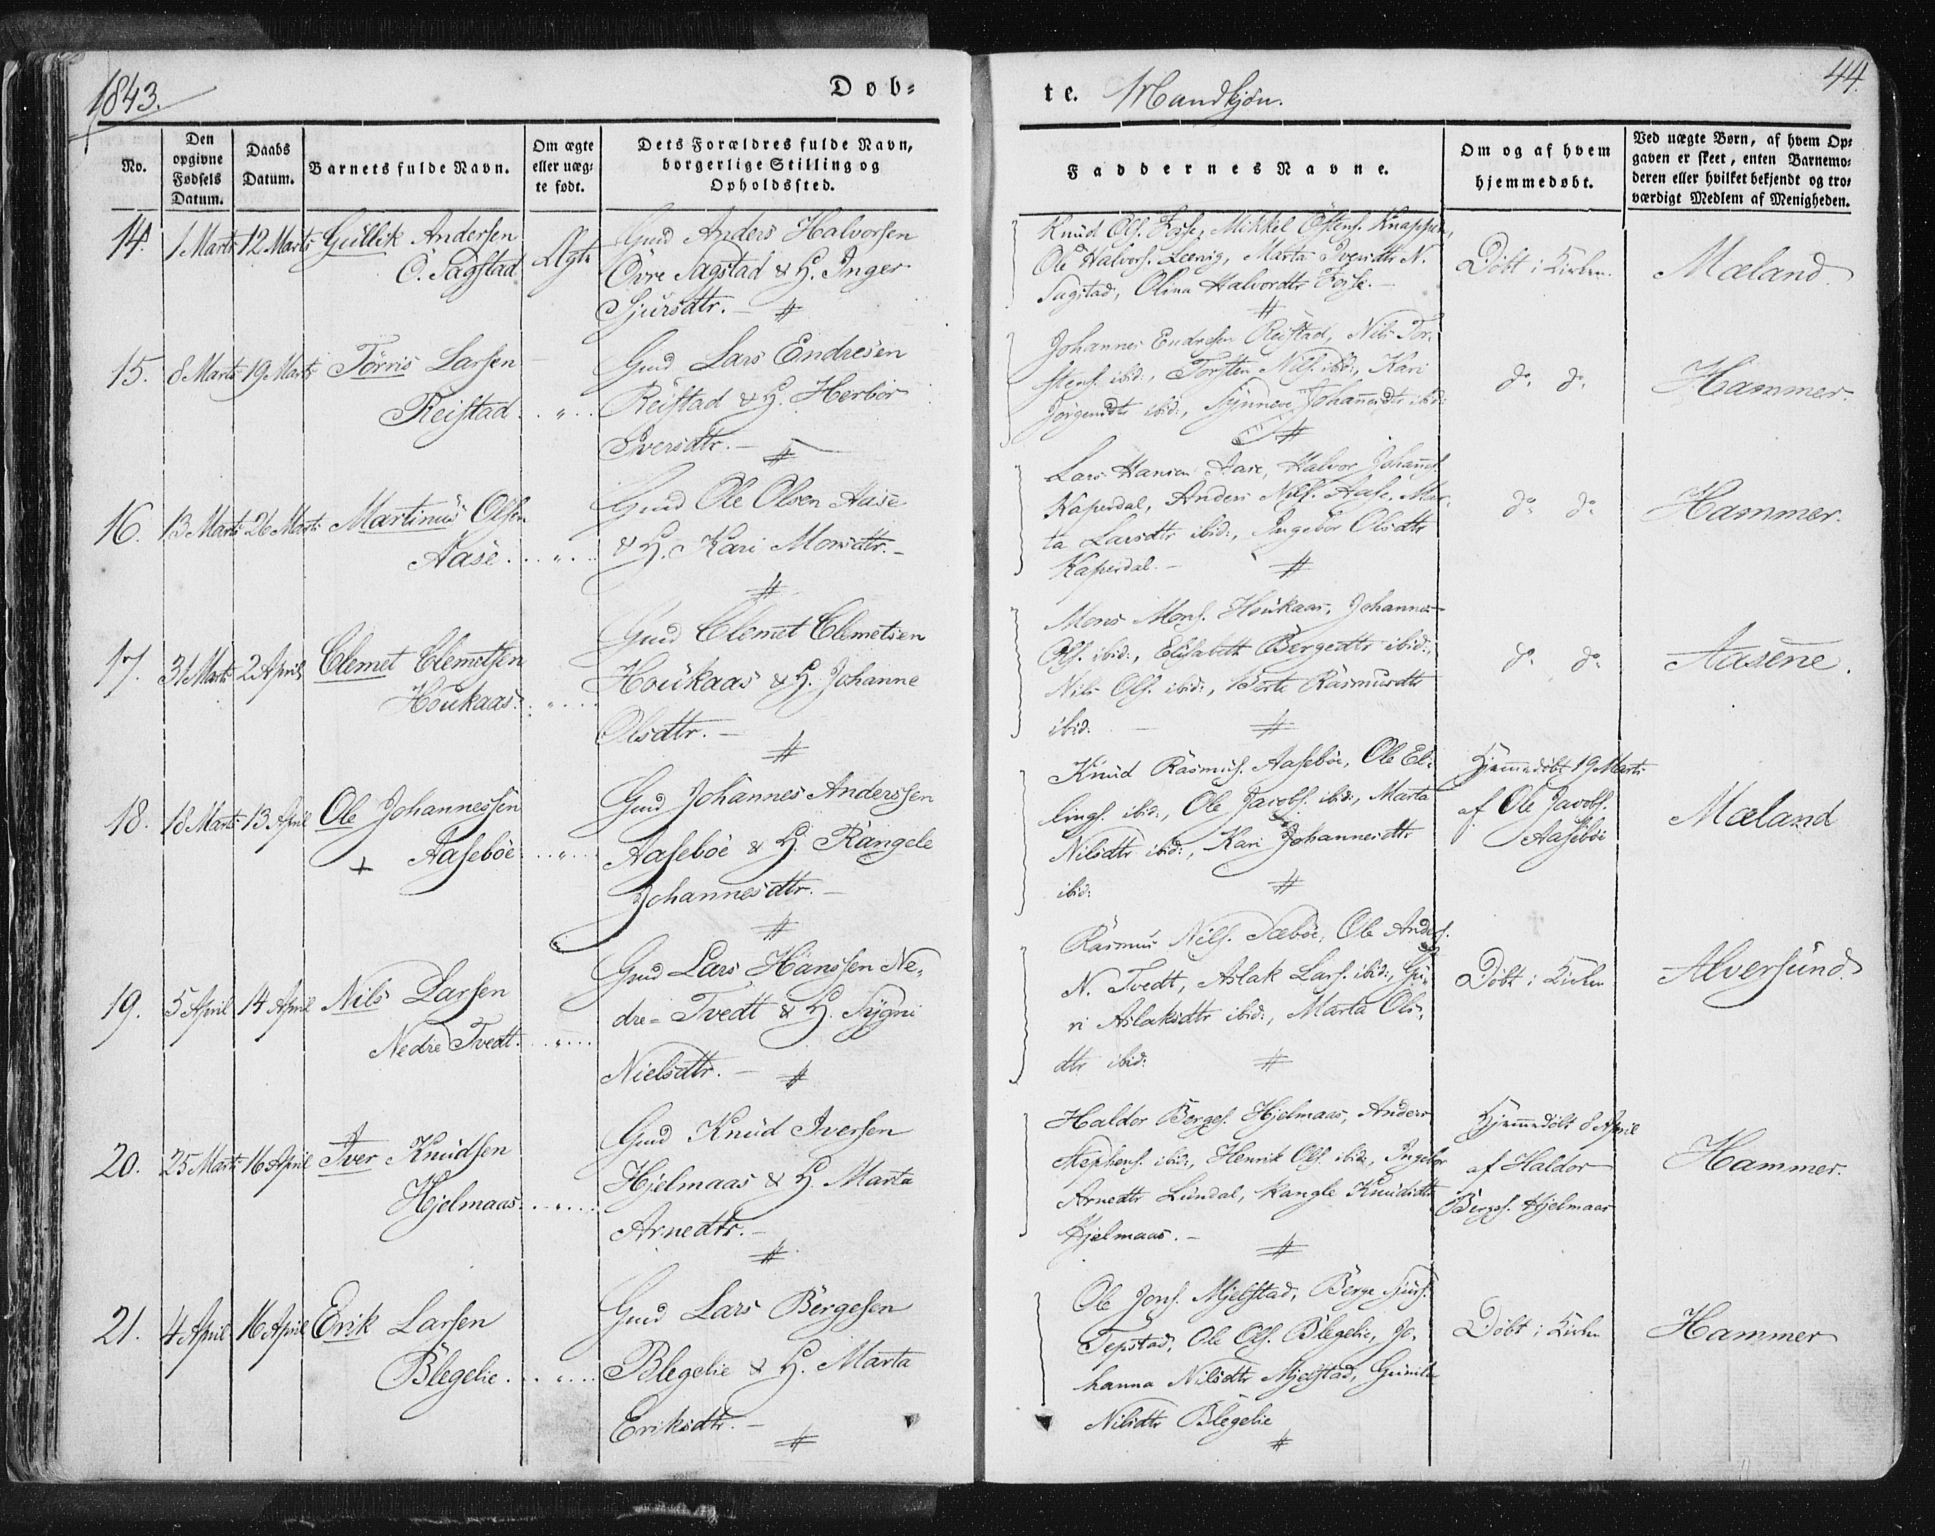 1843.
Døb-
te. Mandkjøn.
44.
No.
Den opgivne Fødsels Datum.
Daabs Datum.
Barnets fulde Navn.
Om ægte eller uægte født.
Dets Forældres fulde Navn, borgerlige Stilling og Opholdssted.
Faddernes Navne.
Om og af hvem hjemmedøbt.
Ved uægte Børn, af hvem Opgaven er skeet, enten Barnemoderen eller hvilket bekjendt og troværdigt Medlem af Menigheden.
14. 1 Marts 12 Marts Gullik Andersen
Ö. Sagstad Ægte
Gmd Anders Halvorsen
Övre Sagstad & H. Inger
Sjursdtr. —
Knud Ols. Fosse, Mikkel Östens. Knappen,
Ole Halvors. Marta Iversdtr N.
Sagstad, Olina Halvordtr Fosse. —
Döbt i Kirken.
Mæland
15. 8 Marts 19 Marts Törris Larsen
Reistad . . „ . .
Gmd Lars Endresen
Reistad & H. Herbor
Iversdtr. —
Johannes Endresen Reistad, Nils Tor-
stens. ibid:, Torsten Nils. ibid:, Kari
Jörgensdtr ibid:, Synneve Johannesdtr ibid:
do. do.
Hammer.
16. 13 Marts 26 Marts Martinus Olsen
Aase . . „ . .
Gmd Ole Olsen Aase
& H. Kari Monsdtr. —
Lars Hansen Aase, Halvor Johans.
Kaperdal, Anders Nils. Aase, Mar-
ta Larsdtr ibid:, Ingebor Olsdtr
Kaperdal. —
do. do.
Hammer.
17. 31 Marts 2 April Clemet Clemetsen
Houkaas . . „ . .
Gmd Clemet Clemetsen
Houkaas & H. Johanne
Olsdtr. —
Mons Mons. Houkaas, Johannes
Ols. ibid:, Elisabeth Bergedtr ibid:,
Nils Ols. ibid:, Berte Rasmusdtr
ibid: —
do. do.
Aasene.
18. 18 Marts 13 April Ole Johannessen
+ Aaseböe . . „ . .
Gmd Johannes Anderssen
Aaseböe & H. Rangele
Johannesdtr. —
Knud Rasmus. Aaseböe, Ole El-
lings. ibid:, Ole Jacobs. ibid:, Marta
Nilsdtr ibid:, Kari Johannesdtr
ibid:
Hjemmedöbt 19 Marts
af Ole Jacobs.
Aaseböe
Mæland
19. 5 April 14 April Nils Larsen
Nedre Tvedt . . „ . .
Gmd Lars Hanssen Ne-
dre- Tvedt & H. Sygni
Nielsdtr. —
Rasmus Nils. Sæböe, Ole Anders.
N. Tvedt, Aslak Lars. ibid:, Gu-
ri Aslaksdtr ibid:, Marta Ols-
dtr ibid:
Döbt i Kirken
Alversund
20. 25 Marts 16 April Iver Knudsen
Hjelmaas . . „ . .
Gmd Knud Iversen
Hjelmaas & H. Marta
Arnedtr. —
Haldor Berges. Hjelmaas, Anders
Stephens. ibid:, Henrik Ols. ibid:, Ingebor
Arnedtr Lundal, Rangle Knudsdtr
Hjelmaas. —
Hjemmedöbt 8 April
af Haldor
Bergs. Hjelmaas
Hammer.
21. 4 April 16 April Erik Larsen
Blegelie . . „ . .
Gmd Lars Bergesen
Blegelie & H. Marta
Eriksdtr. —
Ole Jons. Mjelstad, Berge Sjurs.
Tepstad, Ole Ols. Blegelie, Jo-
hanna Nilsdtr Mjelstad, Gunila
Nilsdtr Blegelie
Döbt i Kirken
Hammer